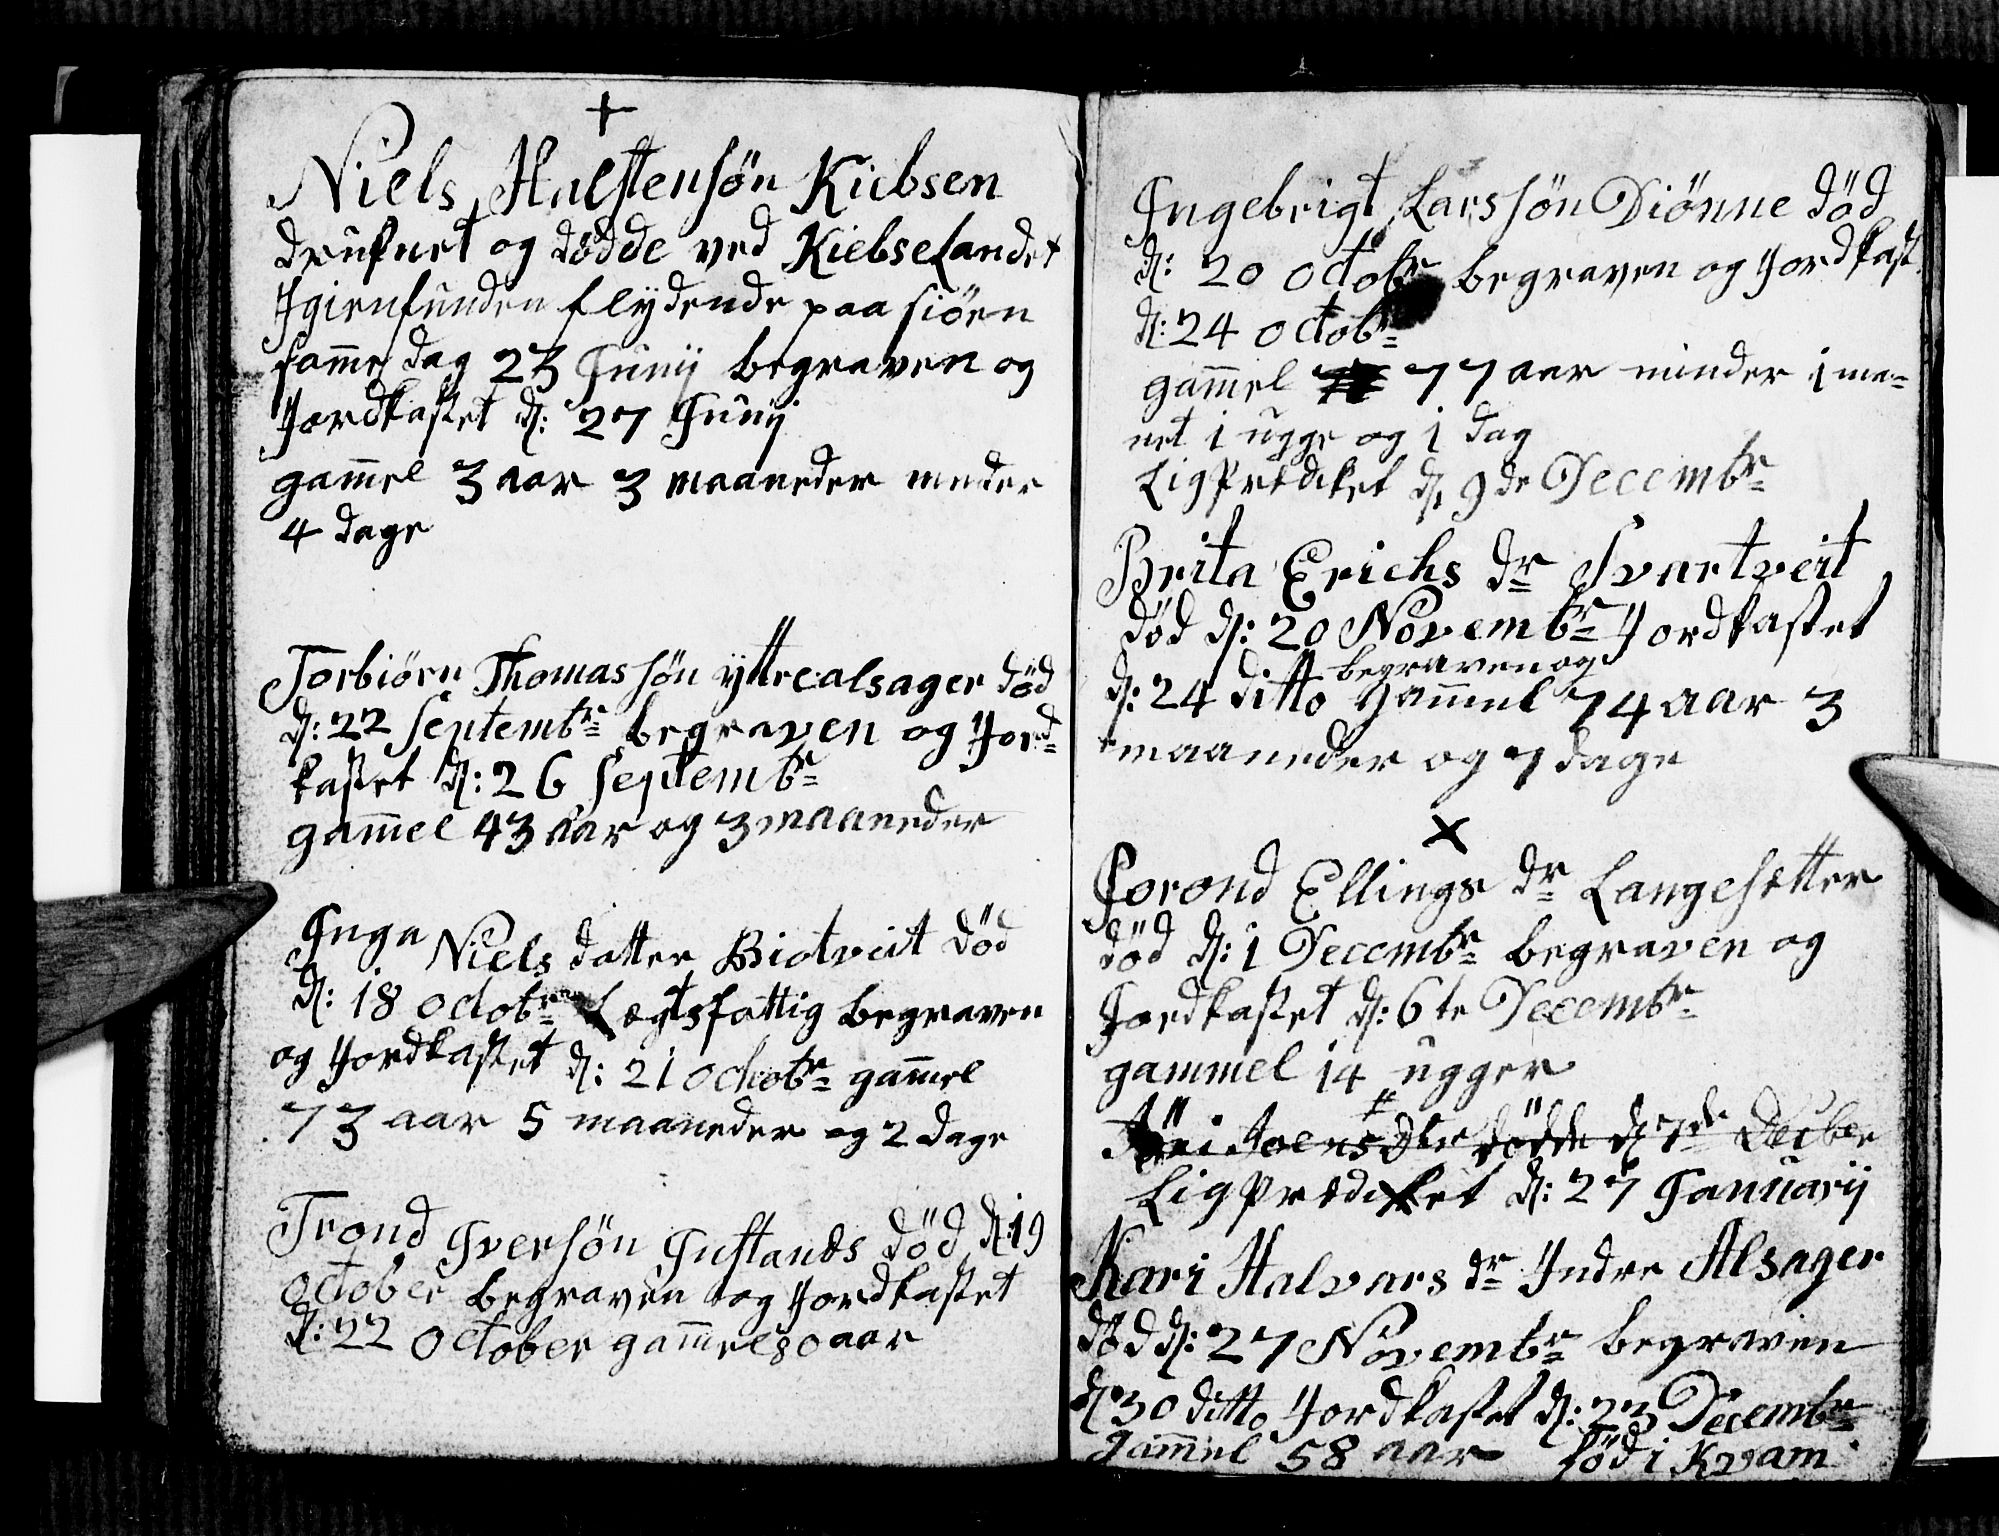 +
Niels Halstensøn Kiebsen
druknet og dødde ved Kiebselandet
Igienfunden flydende paa siøen
samme dag 23 Junij begraven og
Jordkastet d: 27 Junij
gam̄el 3 aar 3 maaneder minder
4 dage
Torbiørn Thomassøn yttrealsager død
d: 22 Septembr begraven og Jord-
kastet d: 26 Septembr
gam̄el 43 aar og 3 maaneder
Inga Niels datter Biotveit død
d: 18 octobr Lægtsfattig begraven
og Jordkastet d: 21 octobr gam̄el
73 aar 5 maaneder og 2 dage
Trond Iversøn Justands død d: 19
october begraven og Jordkastet
d: 22 October gam̄el 80 aar
Ingebrigt Larssøn Diønne død
d: 20 octobr begraven og Jordkast
d: 24 octobr
gam̄el 77 aar minder 1 ma-
net 1 ugge og 1 dag
Ligprediket d. 9de Decembr
Brita Erichs dr Svartveit
død d: 20 Novembr Jordkastet
begraven og
d: 24 ditto gam̄el 74 aar 3
maaneder og 7 dage
x
Jorond Ellings dr Langesetter
død d: 1 Decembr begraven og
Jordkastet d: 6te Decembr
gammel 14 ugger
dødde d 7de Decber
Ligprediket d: 27 Januarij
Kari Halvars dr Indre Alsager
død d: 27 Novembr begraven
d 30 ditto Jordkastet d: 23 Decembr
gam̄el 58 aar fød i Kvam